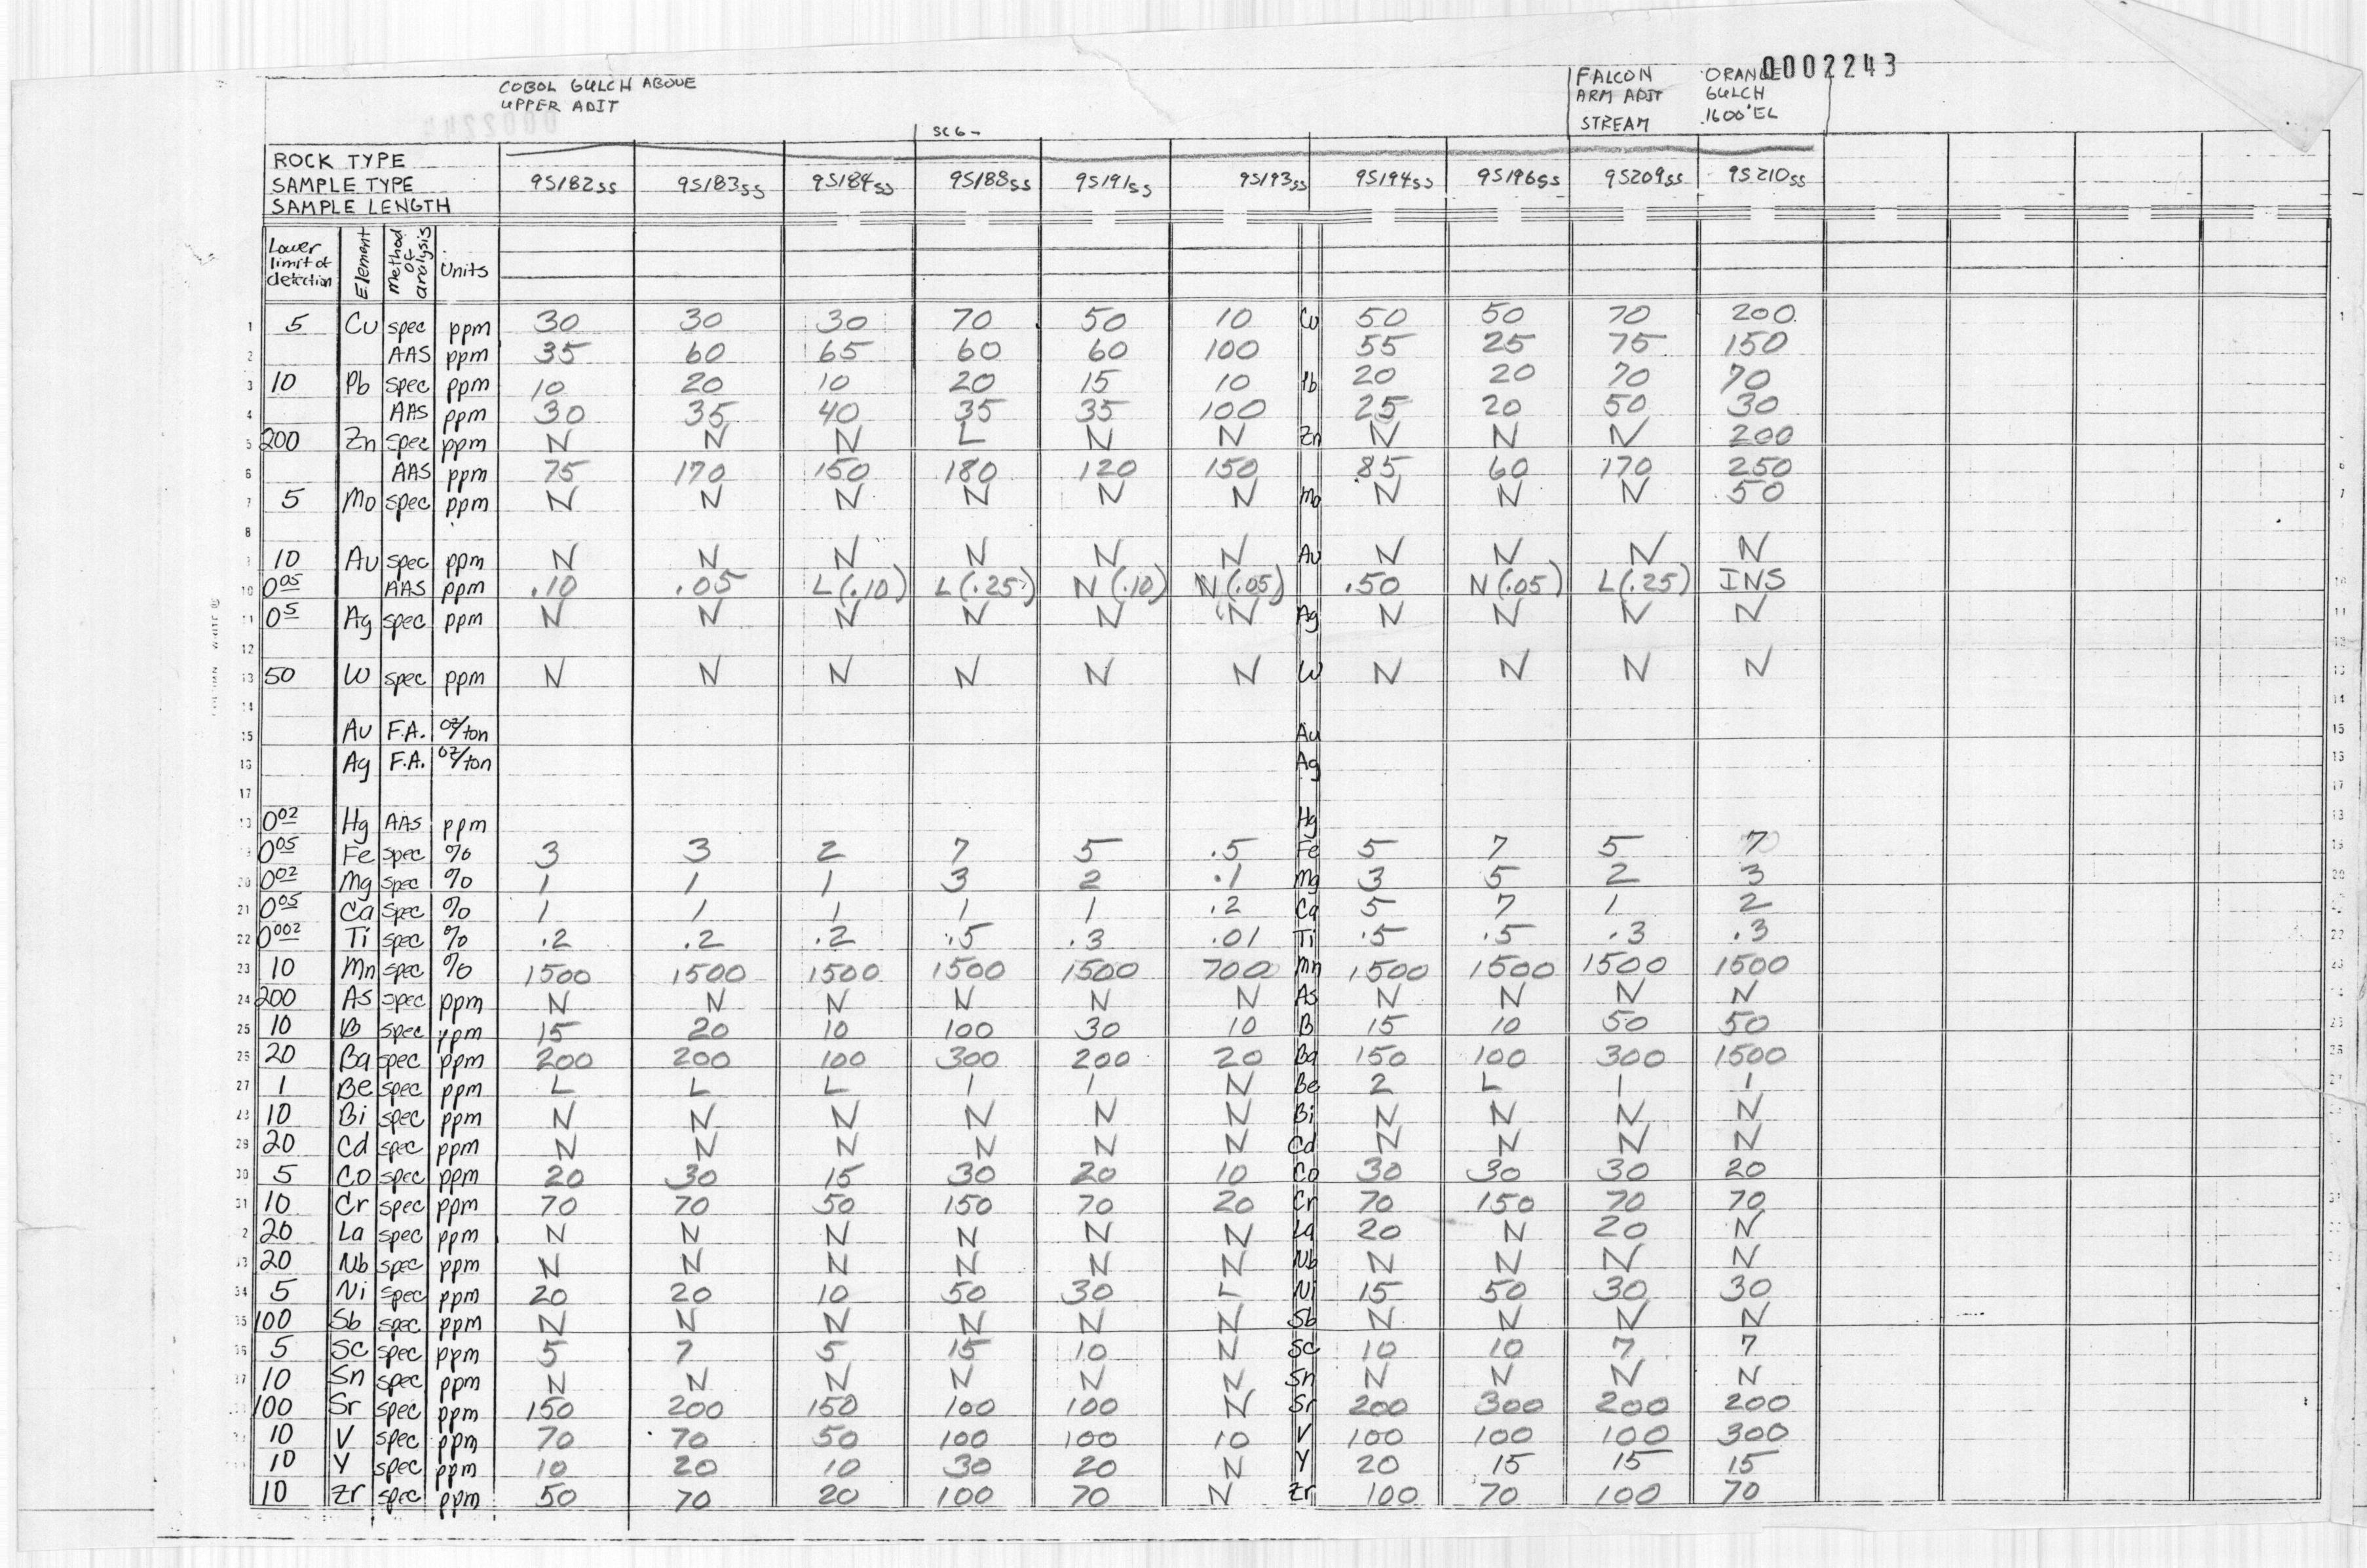 0002243
COBOL GULCH ABOVE
UPPER ADIT
FALCON ORANGE
ARM ADIT GULCH
STREAM 1600' EL
SC6-
ROCK TYPE
SAMPLE TYPE 9S182ss 9S183ss 9S184ss 9S188ss 9S191ss 9S193ss 9S194ss 9S196ss 9S209ss 9S210ss
SAMPLE LENGTH
Lower limit of detection Element Method of analysis Units
1 5 Cu spec ppm 30 30 30 70 50 10 Cu 50 50 70 200
2 AAS ppm 35 60 65 60 60 100 55 25 75 150
3 10 Pb spec ppm 10 20 10 20 15 10 Pb 20 20 70 70
4 AAS ppm 30 35 40 35 35 100 25 20 50 30
5 200 Zn spec ppm N N N L N N Zn N N N 200
6 AAS ppm 75 170 150 180 120 150 85 60 170 250
7 5 Mo spec ppm N N N N N N Mo N N N 50
8
9 10 Au spec ppm N N N N N N Au N N N N
10 0.05 AAS ppm .10 .05 L(.10) L(.25) N(.10) N(.05) .50 N(.05) L(.25) INS
11 0.5 Ag spec ppm N N N N N N Ag N N N N
12
13 50 W spec ppm N N N N N N W N N N N
14
15 Au F.A. oz/ton Au
16 Ag F.A. oz/ton Ag
17
18 0.02 Hg AAS ppm Hg
19 0.05 Fe spec % 3 3 2 7 5 .5 Fe 5 7 5 7
20 0.02 Mg spec % 1 1 1 3 2 .1 Mg 3 5 2 3
21 0.05 Ca spec % 1 1 1 1 1 .2 Ca 5 7 1 2
22 0.002 Ti spec % .2 .2 .2 .5 .3 .01 Ti .5 .5 .3 .3
23 10 Mn spec % 1500 1500 1500 1500 1500 700 Mn 1500 1500 1500 1500
24 200 As spec ppm N N N N N N As N N N N
25 10 B spec ppm 15 20 10 100 30 10 B 15 10 50 50
26 20 Ba spec ppm 200 200 100 300 200 20 Ba 150 100 300 1500
27 1 Be spec ppm L L L 1 1 N Be 2 L 1 1
28 10 Bi spec ppm N N N N N N Bi N N N N
29 20 Cd spec ppm N N N N N N Cd N N N N
30 5 Co spec ppm 20 30 15 30 20 10 Co 30 30 30 20
31 10 Cr spec ppm 70 70 50 150 70 20 Cr 70 150 70 70
2 20 La spec ppm N N N N N N La 20 N 20 N
33 20 Nb spec ppm N N N N N N Nb N N N N
34 5 Ni spec ppm 20 20 10 50 30 L Ni 15 50 30 30
35 100 Sb spec ppm N N N N N N Sb N N N N
36 5 Sc spec ppm 5 7 5 15 10 N Sc 10 10 7 7
37 10 Sn spec ppm N N N N N N Sn N N N N
100 Sr spec ppm 150 200 150 100 100 N Sr 200 300 200 200
10 V spec ppm 70 70 50 100 100 10 V 100 100 100 300
10 Y spec ppm 10 20 10 30 20 N Y 20 15 15 15
10 Zr spec ppm 50 70 20 100 70 N Zr 100 70 100 70